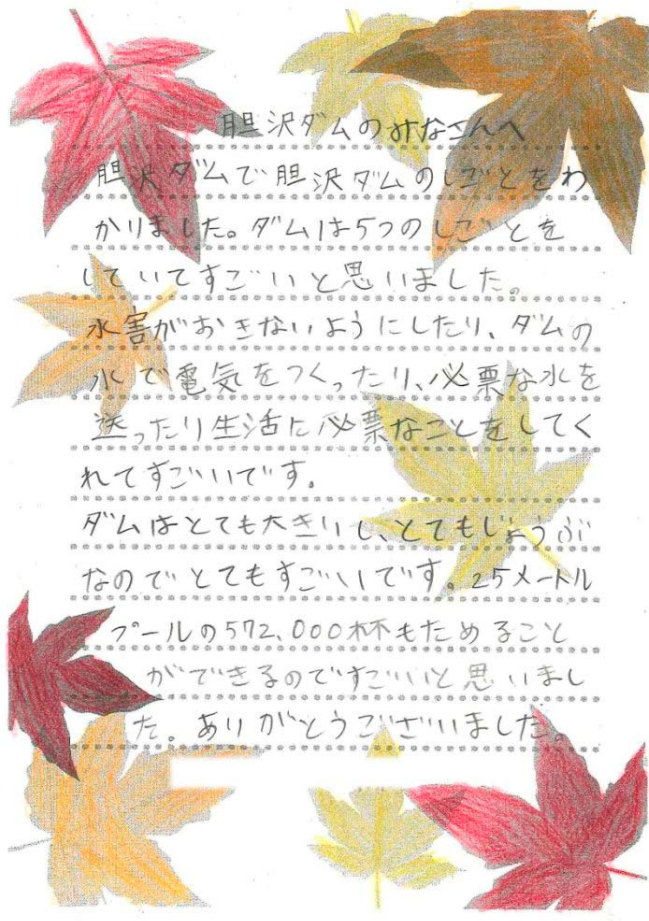 胆沢ダムのみなさんへ
胆沢ダムで胆沢ダムのしごとをわ
かりました。ダムは5つのしごとを
していてすごいと思いました。
水害がおきないようにしたり、ダムの
水で電気をつくったり、必票な水を
送ったり生活に必票なことをしてく
れてすごいです。
ダムはとても大きいし、とてもじょうぶ
なのでとてもすごいです。25メートル
プールの572,000杯もためること
ができるのですごいと思いまし
た。ありがとうございました。